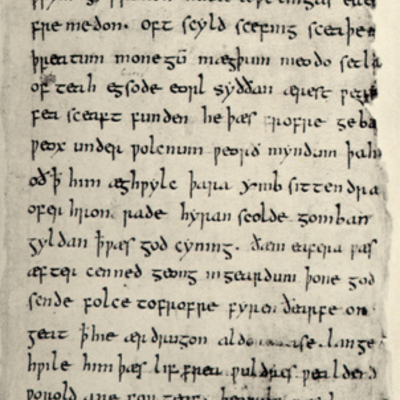 fre medon. oft scyld scefing sceaþen
þreatum monegū mægþum meodo setla
of teah egsode eorl syððan ærest ƿear
fea sceaft funden he þæs frofre geba
ƿeox under ƿolcnum ƿeorð myndum þah
oð ꝥ him æghƿylc þara ymb sittendra
ofer hron rade hyran scolde gomban
gyldan ꝥ ƿæs god cyning. ðæm eafera ƿæs
æfter cenned geong in geardum þone god
sende folce tofrofre fyren ðearfe on
geat ꝥ hie ær drugon aldor ase. lange
hƿile him þæs lif frea ƿuldres ƿealdend
ƿorold are for geaf.